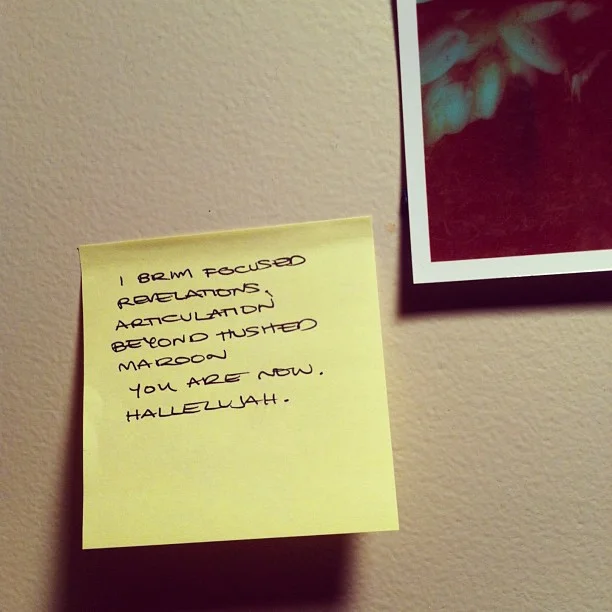 I BRIM FOCUSED
REVELATIONS,
ARTICULATION
BEYOND HUSHED
MAROON
YOU ARE NOW.
HALLELUJAH.